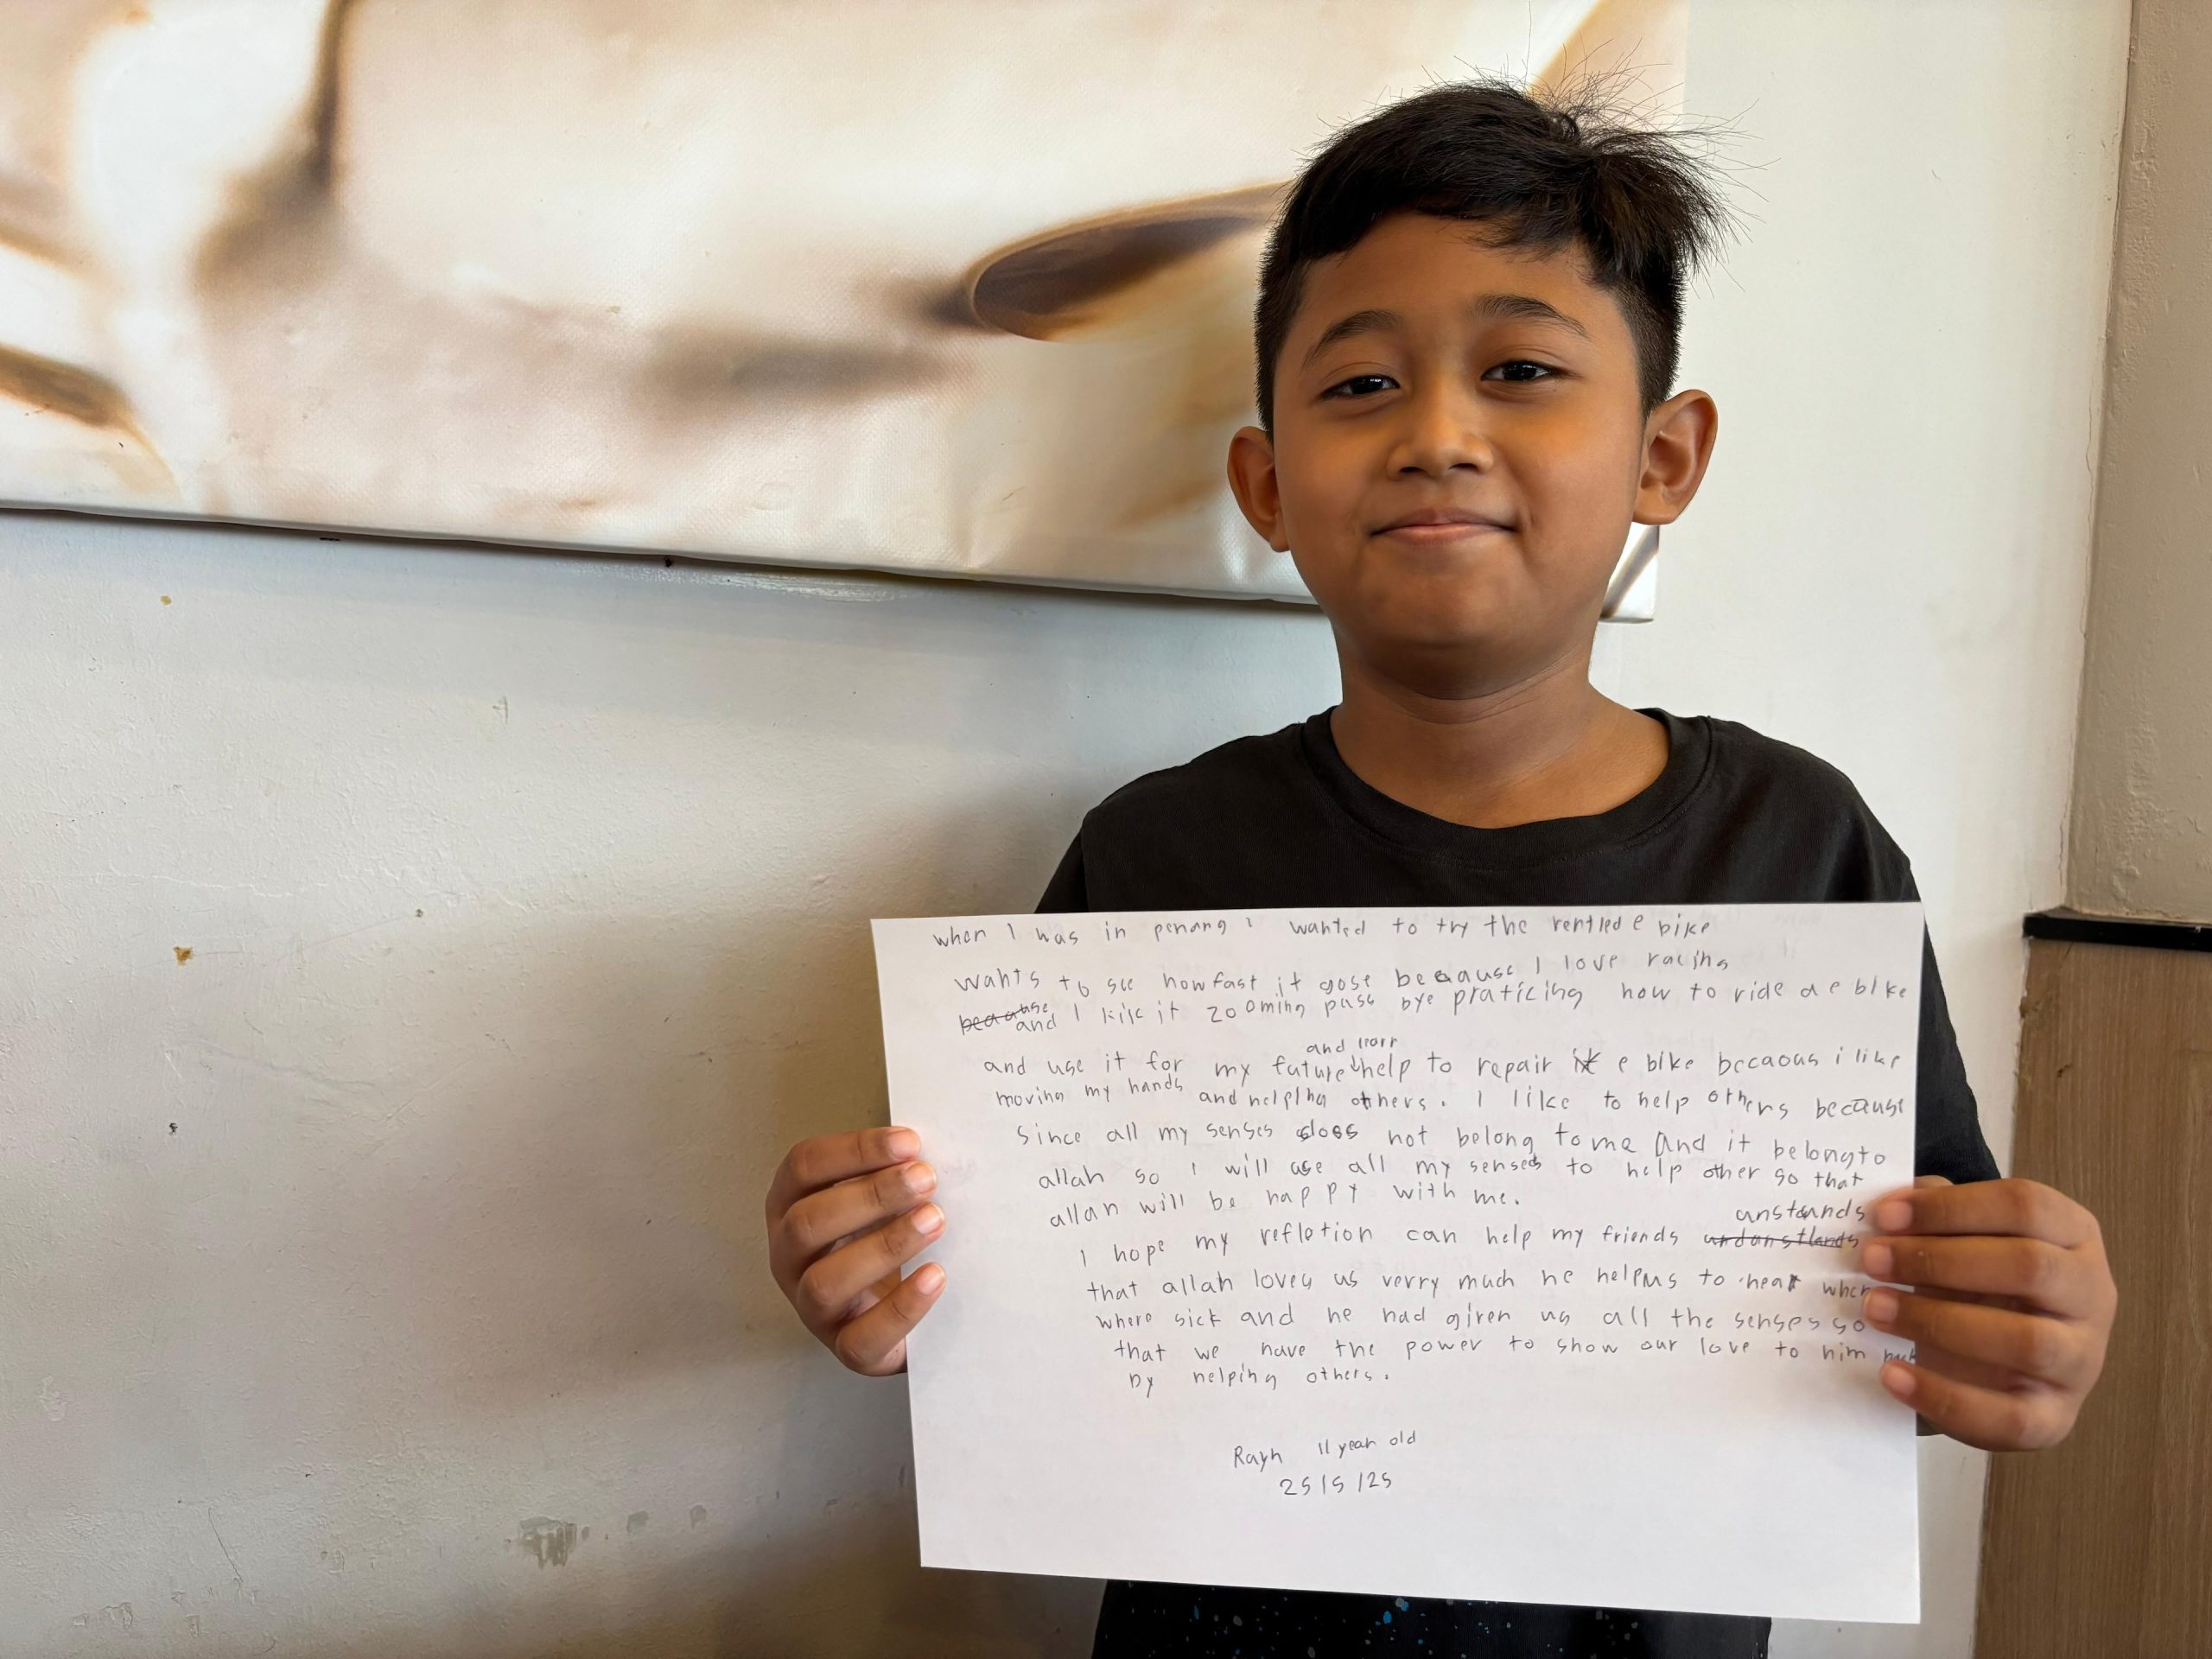 when I was in penang i wanted to try the rentled e bike
wants to see how fast it gose because I love racing
because and I like it zooming pass bye praticing how to ride a e bike
and learn
and use it for my future help to repair it e bike becaous i like
moving my hands and helping others. I like to help others because
since all my senses does not belong to me and it belong to
allah so I will use all my senses to help other so that
allah will be happy with me.
anstands
I hope my refletion can help my friends
that allah loves us verry much he helpus to hear when
where sick and he had given us all the senses so
that we have the power to show our love to him
by helping others.
Rayn 11 year old
25/5/25